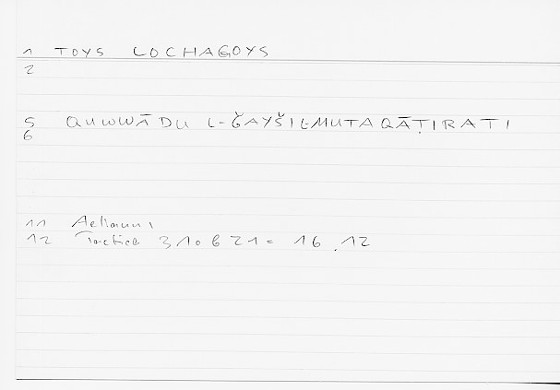 1 TOYS LOCHAGOYS
2
5 QUWWĀDU L-ǦAYŠI L-MUTAQĀṬIRATI
6
11 Aeliani
12 Tactica 310b 21 = 16.12